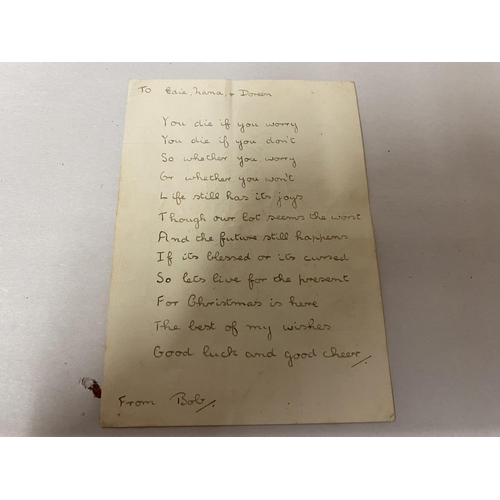 To Edie, Nana, + Doreen
You die if you worry
You die if you don't
So whether you worry
Or whether you won't
Life still has its joys
Though our lot seems the worst
And the future still happens
If its blessed or its cursed
So lets live for the present
For Christmas is here
The best of my wishes
Good luck and good cheer
From Bob